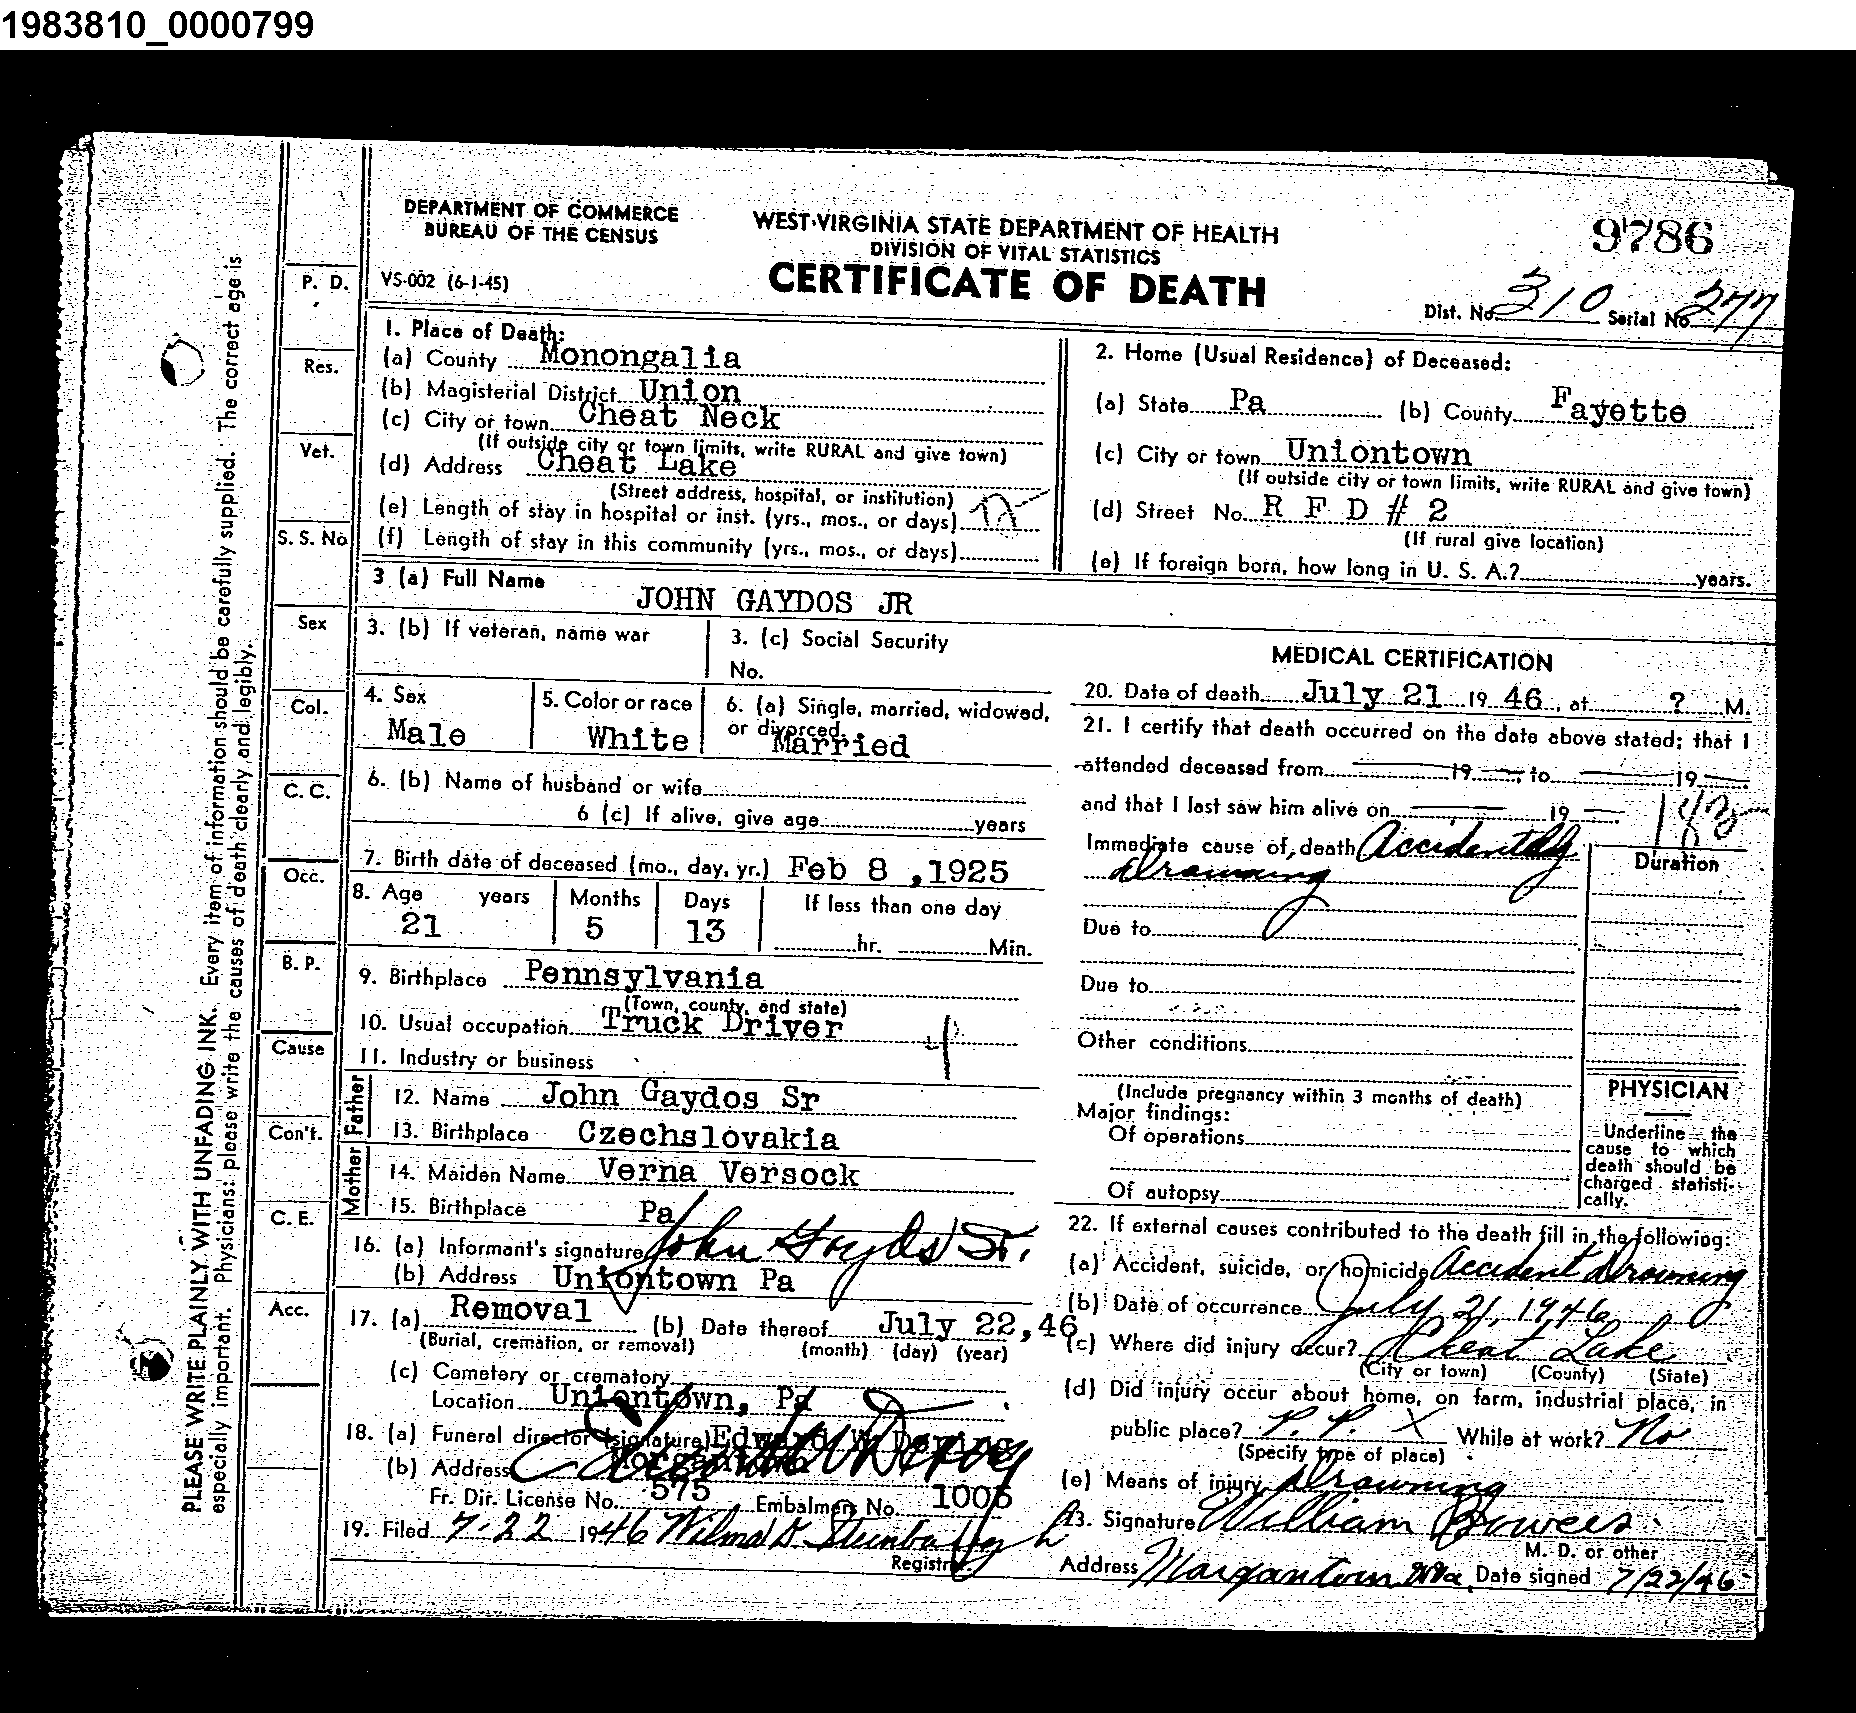 1983810_0000799
DEPARTMENT OF COMMERCE
BUREAU OF THE CENSUS
VS-002 (6-1-45)
WEST VIRGINIA STATE DEPARTMENT OF HEALTH
DIVISION OF VITAL STATISTICS
CERTIFICATE OF DEATH
9786
Dist. No. 310 Serial No. 277
PLEASE WRITE PLAINLY WITH UNFADING INK. Every item of information should be carefully supplied. The correct age is
especially important. Physicians: please write the causes of death clearly and legibly.
P. D.
Res.
Vet.
S. S. No
Sex
Col.
C. C.
Occ.
B. P.
Cause
Con't.
C. E.
Acc.
1. Place of Death:
(a) County Monongalia
(b) Magisterial District Union
(c) City or town Cheat Neck
(If outside city or town limits, write RURAL and give town)
(d) Address Cheat Lake
(Street address, hospital, or institution)
(e) Length of stay in hospital or inst. (yrs., mos., or days)
(f) Length of stay in this community (yrs., mos., or days)
2. Home (Usual Residence) of Deceased:
(a) State Pa (b) County Fayette
(c) City or town Uniontown
(If outside city or town limits, write RURAL and give town)
(d) Street No. R F D # 2
(If rural give location)
(e) If foreign born, how long in U. S. A.? years.
3 (a) Full Name
JOHN GAYDOS JR
3. (b) If veteran, name war
3. (c) Social Security
No.
4. Sex
Male
5. Color or race
White
6. (a) Single, married, widowed,
or divorced.
Married
6. (b) Name of husband or wife
6 (c) If alive, give age years
7. Birth date of deceased (mo., day, yr.) Feb 8 ,1925
8. Age years Months Days If less than one day
21 5 13 hr. Min.
9. Birthplace Pennsylvania
(Town, county, and state)
10. Usual occupation Truck Driver
11. Industry or business
Father
12. Name John Gaydos Sr
13. Birthplace Czechslovakia
Mother
14. Maiden Name Verna Versock
15. Birthplace Pa
16. (a) Informant's signature John Gayds Sr.
(b) Address Uniontown Pa
17. (a) Removal (b) Date thereof July 22,46
(Burial, cremation, or removal) (month) (day) (year)
(c) Cemetery or crematory
Location Uniontown, Pa
18. (a) Funeral director (signature) Edward
(b) Address
Fr. Dir. License No. 575 Embalmers No. 1006
19. Filed 7-22 1946 Wilma D.
Registrar.
MEDICAL CERTIFICATION
20. Date of death July 21 19 46, at ? M.
21. I certify that death occurred on the date above stated; that I
attended deceased from 19 to 19
and that I last saw him alive on 19
183
Immediate cause of death Accidently
Drowning
Duration
Due to
Due to
Other conditions
(Include pregnancy within 3 months of death)
Major findings:
Of operations
Of autopsy
PHYSICIAN
Underline the
cause to which
death should be
charged statisti-
cally.
22. If external causes contributed to the death fill in the following:
(a) Accident, suicide, or homicide Accident Drowning
(b) Date of occurrence July 21, 1946
(c) Where did injury occur? Cheat Lake
(City or town) (County) (State)
(d) Did injury occur about home, on farm, industrial place, in
public place? P. P. X While at work? No
(Specify type of place)
(e) Means of injury Drowning
23. Signature William Bowers
M. D. or other
Address Morgantown WVa. Date signed 7/22/46